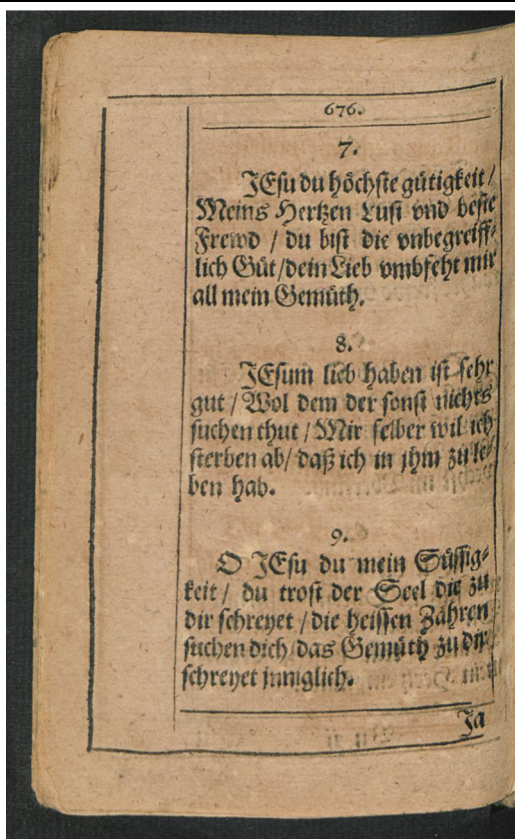 676.
7.
JEsu du höchste gütigkeit /
Meins Hertzen Lust vnd beste
Frewd / du bist die vnbegreiff-
lich Güt / dein Lieb vmbfeht mir
all mein Gemüth.
8.
JEsum lieb haben ist sehr
gut / Wol dem der sonst nichts
suchen thut / Mir selber wil ich
sterben ab / daß ich in jhm zu le-
ben hab.
9.
O JEsu du mein Süssig-
keit / du trost der Seel die zu
dir schreyet / die heissen Zähren
suchen dich / das Gemüth zu dir
schreyet inniglich.
Ja